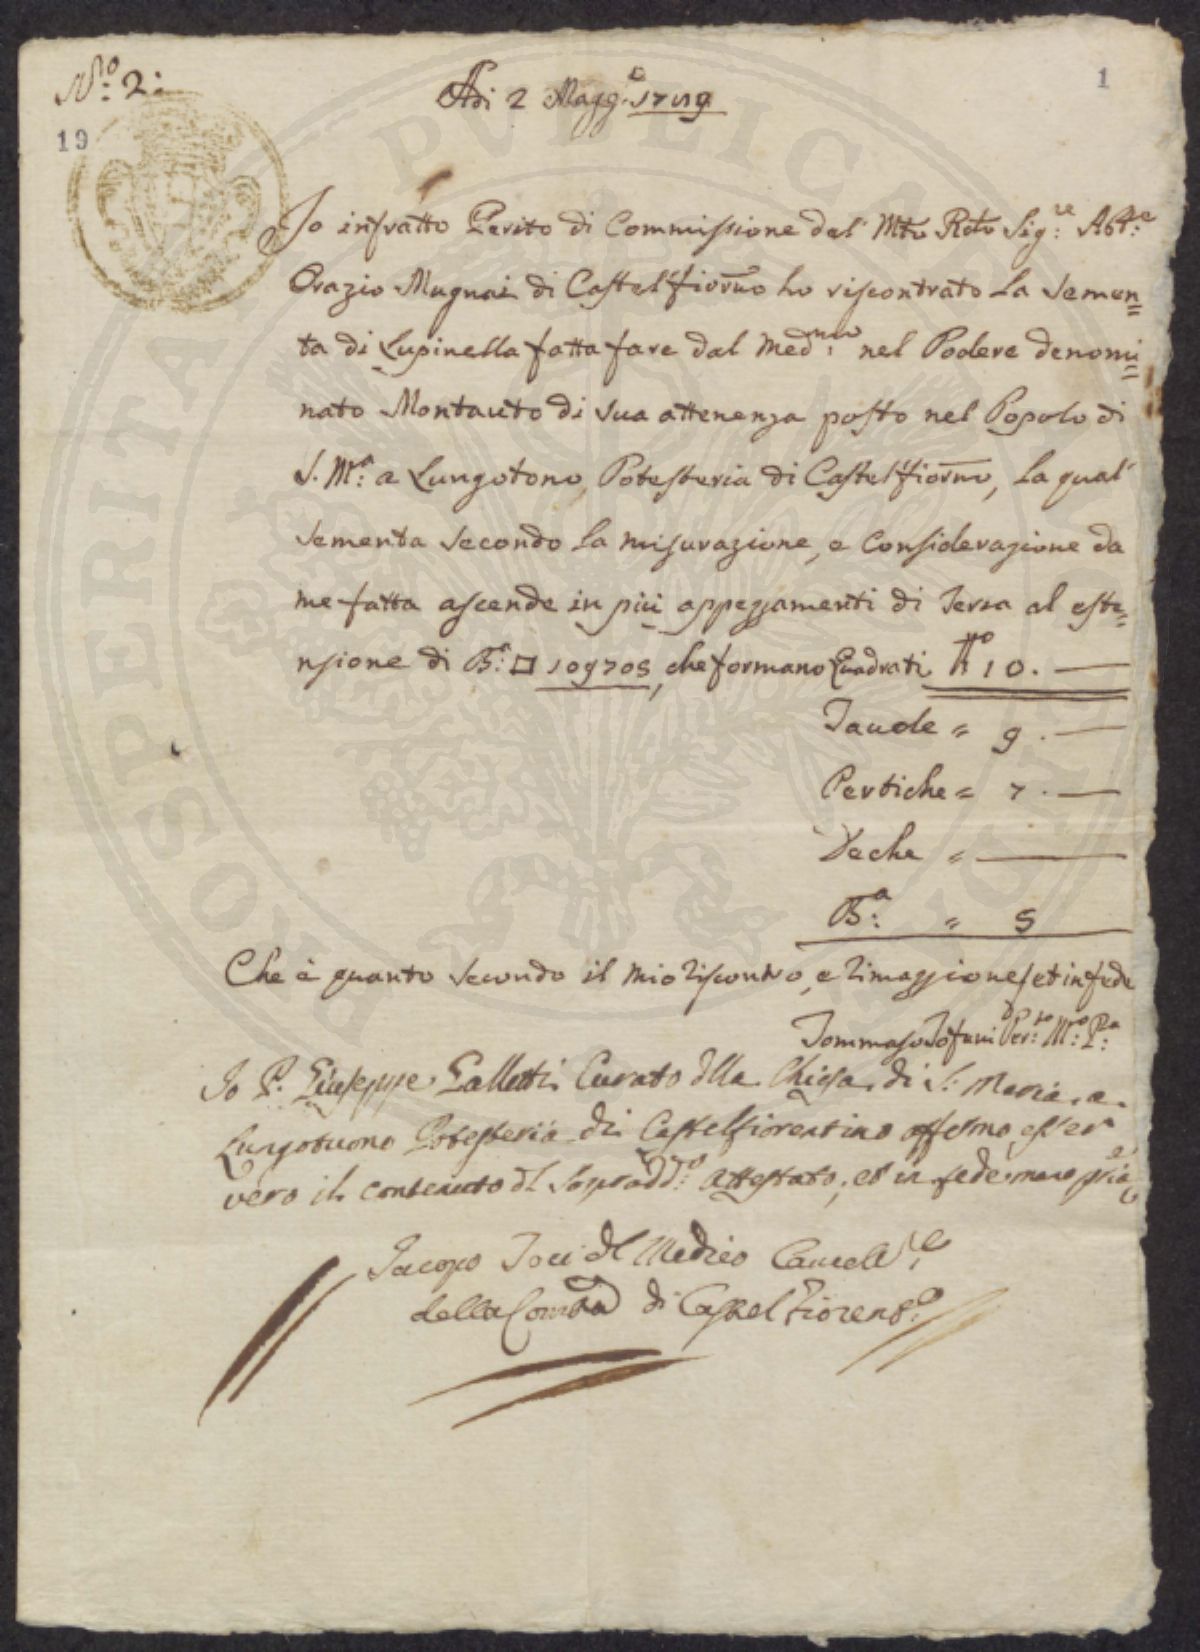 N.o 2:
1
Adi 2 Magg.o 1789
19
Io infratto Perito di Commissione del Mto Rdo Sig.re Abt.e
Orazio Mugnai di Castelfiorno ho riscontrato la semen=
ta di Lupinella fatta fare dal Med.mo nel Podere denomi=
nato Montauto di sua attenenza posto nel Popolo di
S. M.a a Lungotono, Potesteria di Castelfiorno, la qual
sementa secondo la misurazione, e considerazione da
me fatta ascende in più appezzamenti di Terra al este=
nsione di B.a □ 109705, che formano Quadrati N.o 10. —
Tavole = 9. —
Pertiche = 7. —
Deche = —
B.a = 5
Che è quanto secondo il mio riscontro, e et in fede
Tommaso Tofani Per.to M.o P.a
Io P. Giuseppe Galletti Curato dlla Chiesa di S. Maria a
Lungotuono Potesteria di Castelfiorentino affermo esser
vero il contenuto dl sopradd.o attestato, et in fede mano pria
Jacopo dl Medico Cancell.re
della Comtà di Castel Fiorent.o
PROSPERITAS PUBLICA